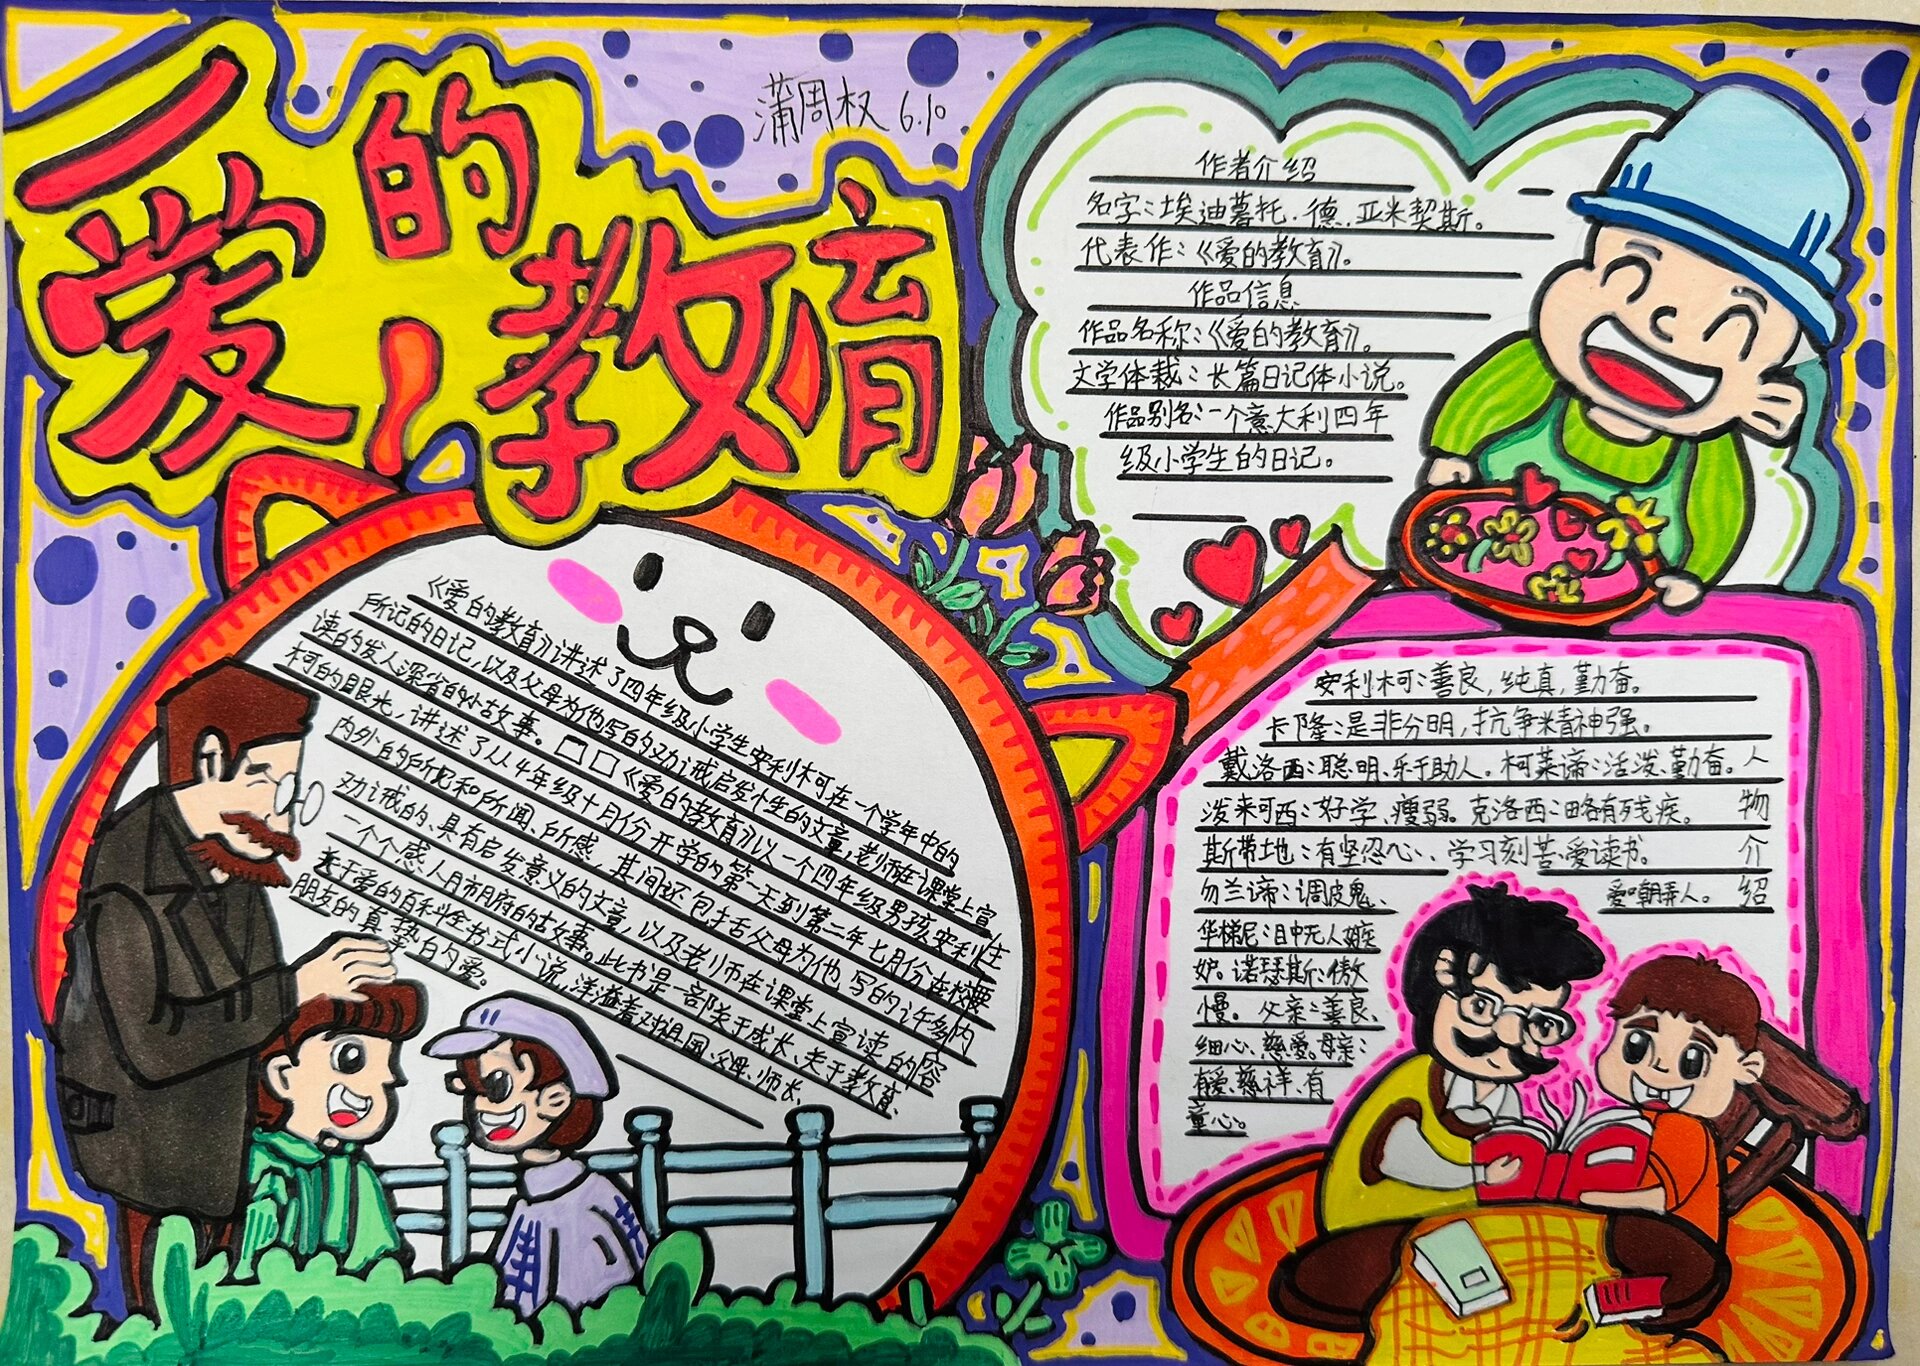 爱的教育
蒲周权 6.10
作者介绍
名字:埃迪蒙托.德.亚米契斯。
代表作:《爱的教育》。
作品信息
作品名称:《爱的教育》。
文学体裁:长篇日记体小说。
作品别名:一个意大利四年
级小学生的日记。
《爱的教育》讲述了四年级小学生安利柯在一个学年中的
所记的日记,以及父母为他写的劝诫启发性的文章,老师在课堂上宣
读的发人深省的小故事。《爱的教育》以一个四年级男孩安利
柯的眼光,讲述了从4年级十月份开学的第一天到第二年七月份在校
内外的所见和所闻、所感,其间还包括父母为他写的许多
劝诫的、具有启发意义的文章,以及老师在课堂上宣读的内容
一个个感人肺腑的故事。此书是一部关于成长、关于教育、
关于爱的百科全书式小说,洋溢着对祖国、父母、师长、
朋友的真挚的爱。
人物介绍
安利柯:善良,纯真,勤奋。
卡隆:是非分明,抗争精神强。
戴洛西:聪明、乐于助人。柯莱谛:活泼、勤奋。
泼来可西:好学、瘦弱。克洛西:略有残疾。
斯带地:有坚忍心、学习刻苦、爱读书。
勿兰谛:调皮鬼、爱嘲弄人。
华梯尼:目中无人嫉
妒。诺瑟斯:傲
慢。父亲:善良、
细心、慈爱。母亲:
有爱、慈祥、有
童心。